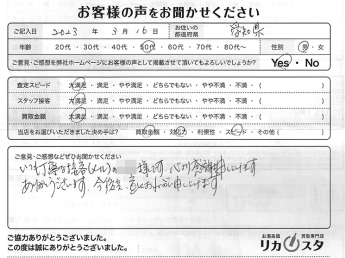 お客様の声をお聞かせください
ご記入日 2023年 3月 16日 お住いの都道府県 愛知県
年齢 20代・30代・40代・50代・60代・70代・80代〜 性別 男・女
ご意見・ご感想を弊社ホームページにお客様の声として掲載させて頂いてもよろしいでしょうか? Yes・No
査定スピード 大満足・満足・やや満足・どちらでもない・やや不満・不満・( )
スタッフ接客 大満足・満足・やや満足・どちらでもない・やや不満・不満・( )
買取金額 大満足・満足・やや満足・どちらでもない・やや不満・不満・( )
当店をお選びいただきました決め手は? 買取金額・対応力・利便性・スピード・その他( )
ご意見・ご感想などぜひお聞かせください
いつも丁寧な接客(メール)の 様には、心から感謝申し上げます
ありがとうございます。今後とも、宜しくお願い申し上げます。
ご協力ありがとうございました。
この度は誠にありがとうございました。
お酒高価買取専門店
リカスタ